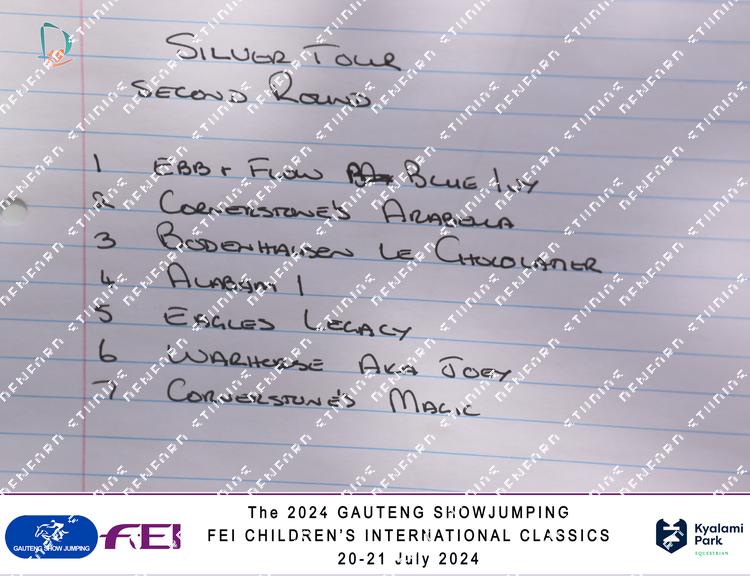 SILVER TOUR
SECOND ROUND
1 EBB + FLOW BLUE IVY
2 CORNERSTONE'S ARABELLA
3 BODENHAUSEN LE CHOCOLATIER
4 ALABAMA 1
5 EAGLES LEGACY
6 WARHORSE AKA JOEY
7 CORNERSTONE'S MAGIC
The 2024 GAUTENG SHOWJUMPING
FEI CHILDREN'S INTERNATIONAL CLASSICS
20-21 July 2024
GAUTENG SHOW JUMPING
FEI
Kyalami
Park
EQUESTRIAN